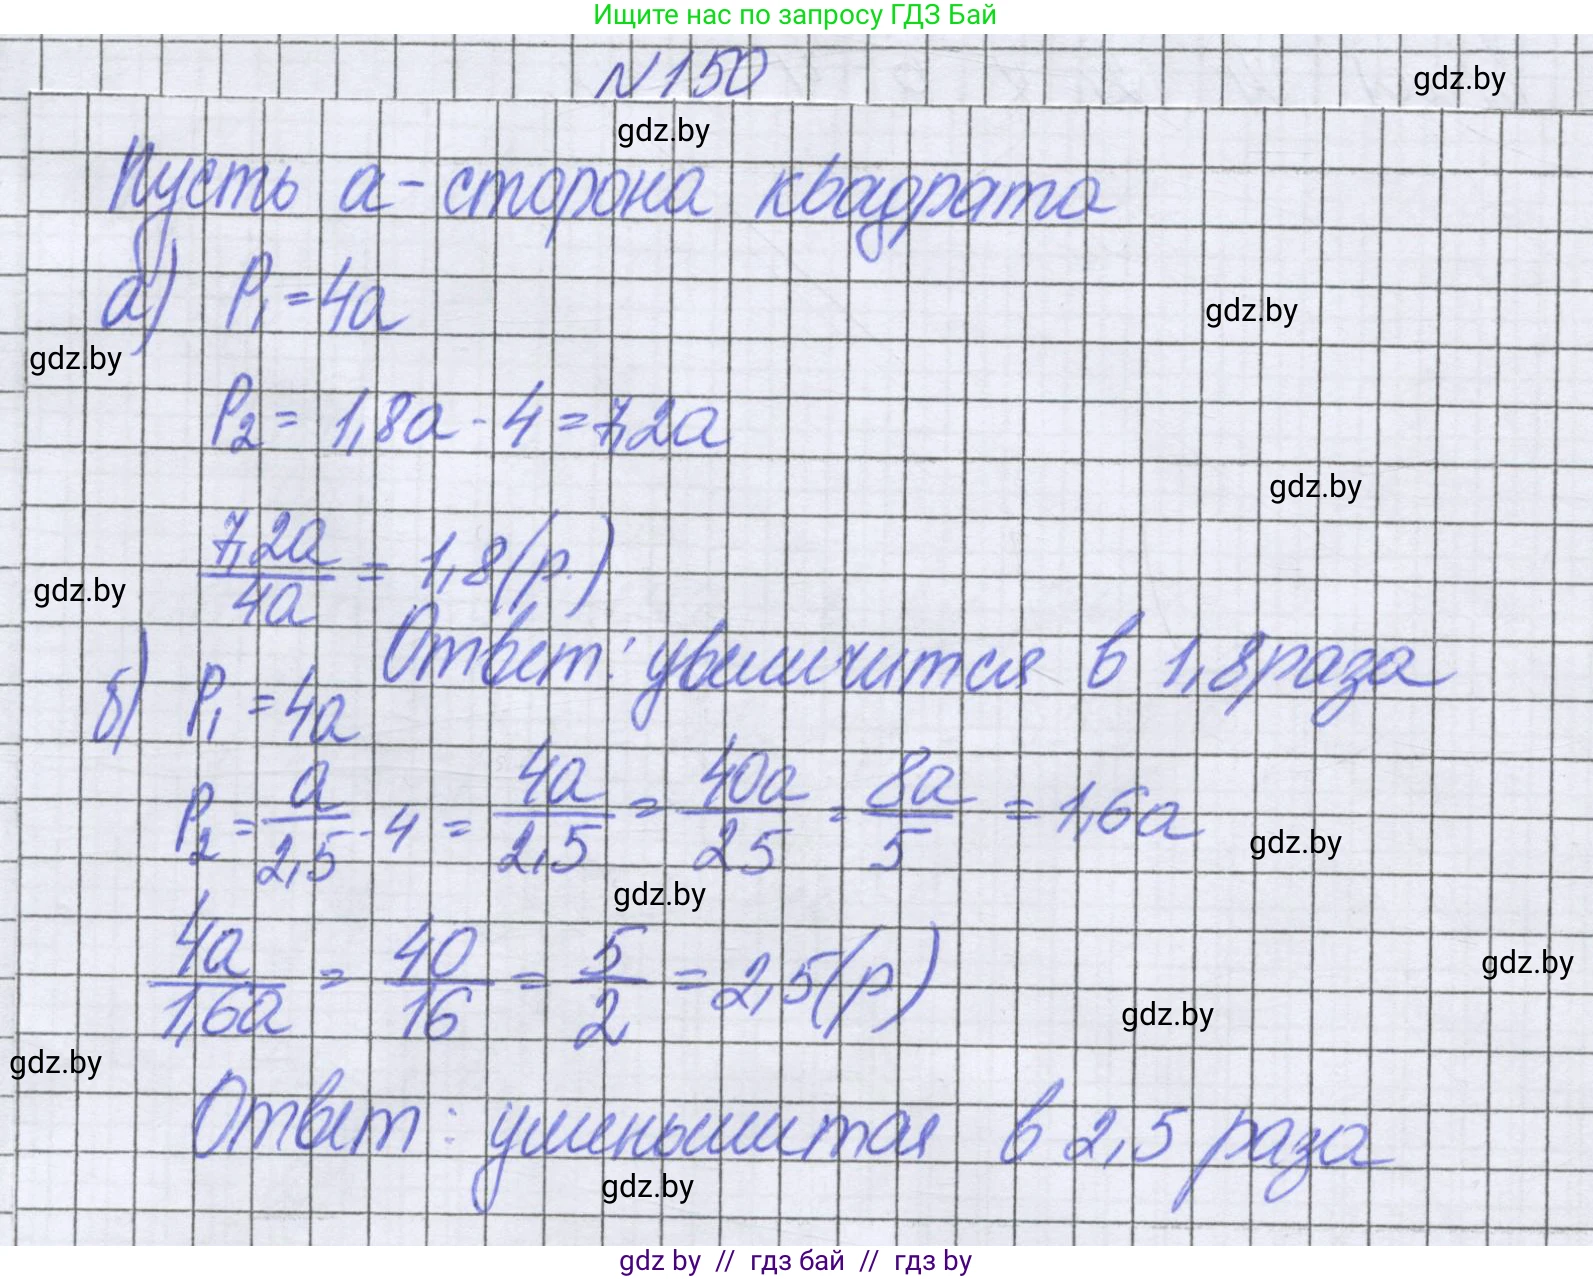 Ищите нас по запросу ГДЗ Бай
№150
gdz.by
gdz.by
Пусть a - сторона квадрата
а) P₁ = 4a
gdz.by
gdz.by
P₂ = 1,8a · 4 = 7,2a
gdz.by
7,2a/4a = 1,8 (р.)
gdz.by
Ответ: увеличится в 1,8 раза
б) P₁ = 4a
P₂ = a/2,5 · 4 = 4a/2,5 = 40a/25 = 8a/5 = 1,6a
gdz.by
gdz.by
4a/1,6a = 40/16 = 5/2 = 2,5 (р)
gdz.by
gdz.by
gdz.by
Ответ: уменьшится в 2,5 раза
gdz.by
gdz by // гдз бай // гдз by